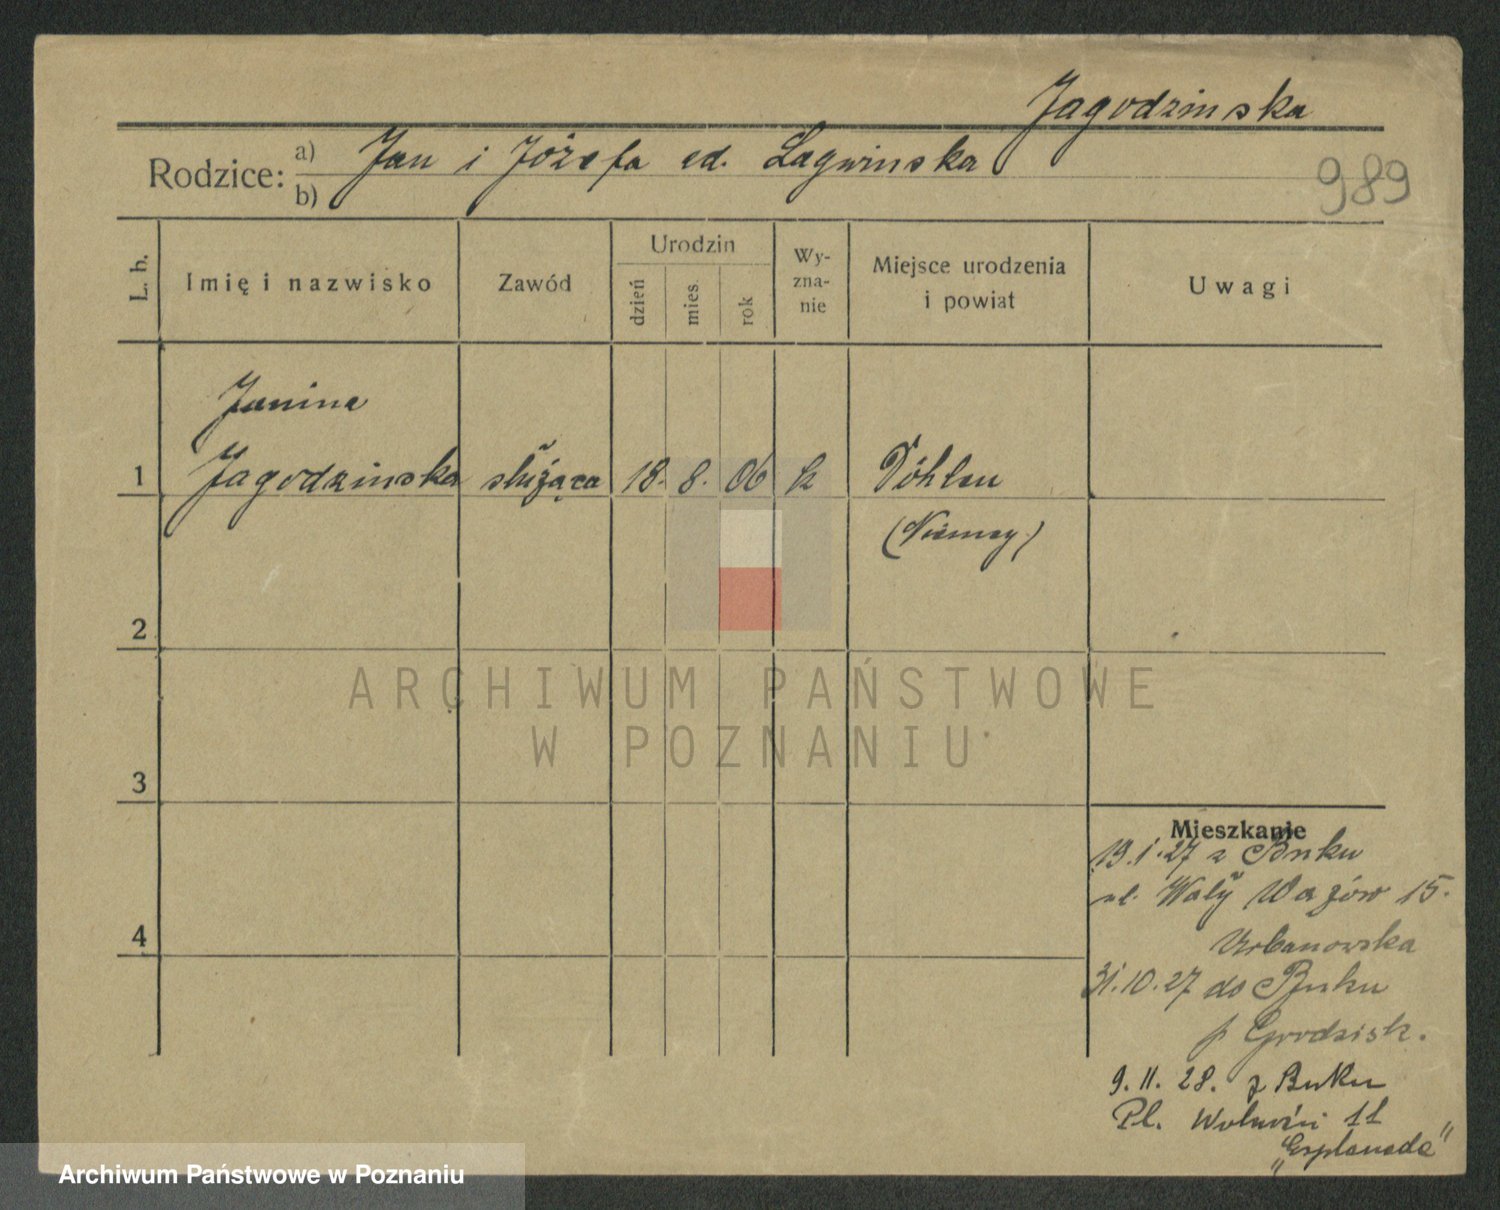 Jagodzinska
Rodzice: a) Jan i Józefa ed. Lagwinska
b)
989
L. b.
Imię i nazwisko
Zawód
Urodzin
dzień
mies.
rok
Wy-
zna-
nie
Miejsce urodzenia
i powiat
Uwagi
Janina
1 Jagodzinska służąca 18. 8. 06 k Döhlen
(Niemcy)
2
ARCHIWUM PAŃSTWOWE
W POZNANIU
3
Mieszkanie
19.1.27 z Buku
ul. Wały Wazów 15.
4
Urbanowska
31.10.27 do Buku
p Grodzisk.
9.11.28. z Buku
Pl. Wolności 11
"Esplanada"
Archiwum Państwowe w Poznaniu